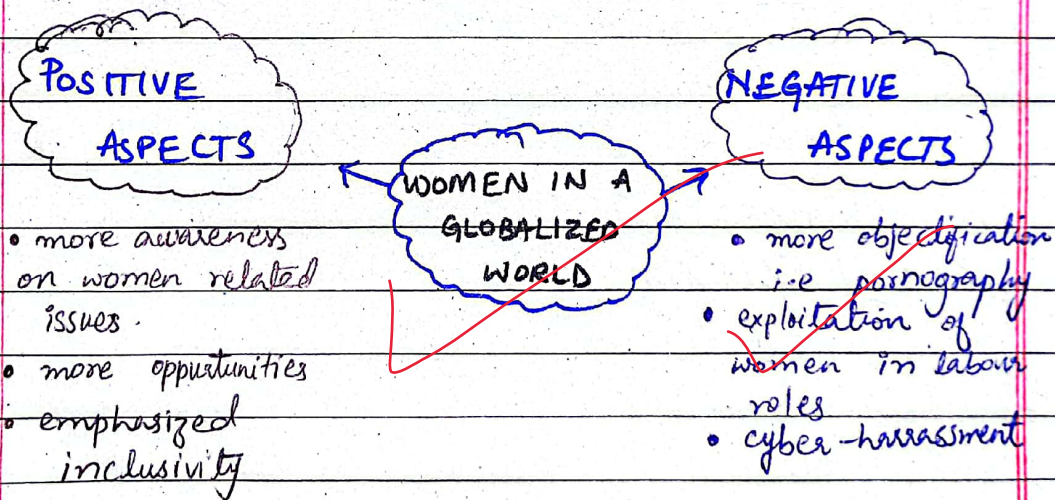 POSITIVE
ASPECTS
WOMEN IN A
GLOBALIZED
WORLD
NEGATIVE
ASPECTS
• more awareness
on women related
issues.
• more oppustunities
• emphasized
inclusivity
• more objectification
i.e pornography
• exploitation of
women in labour
roles
• cyber-harrassment